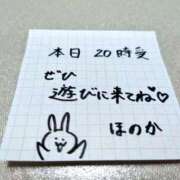 本日 20時受
ぜひ
遊びに来てね♡
ほのか